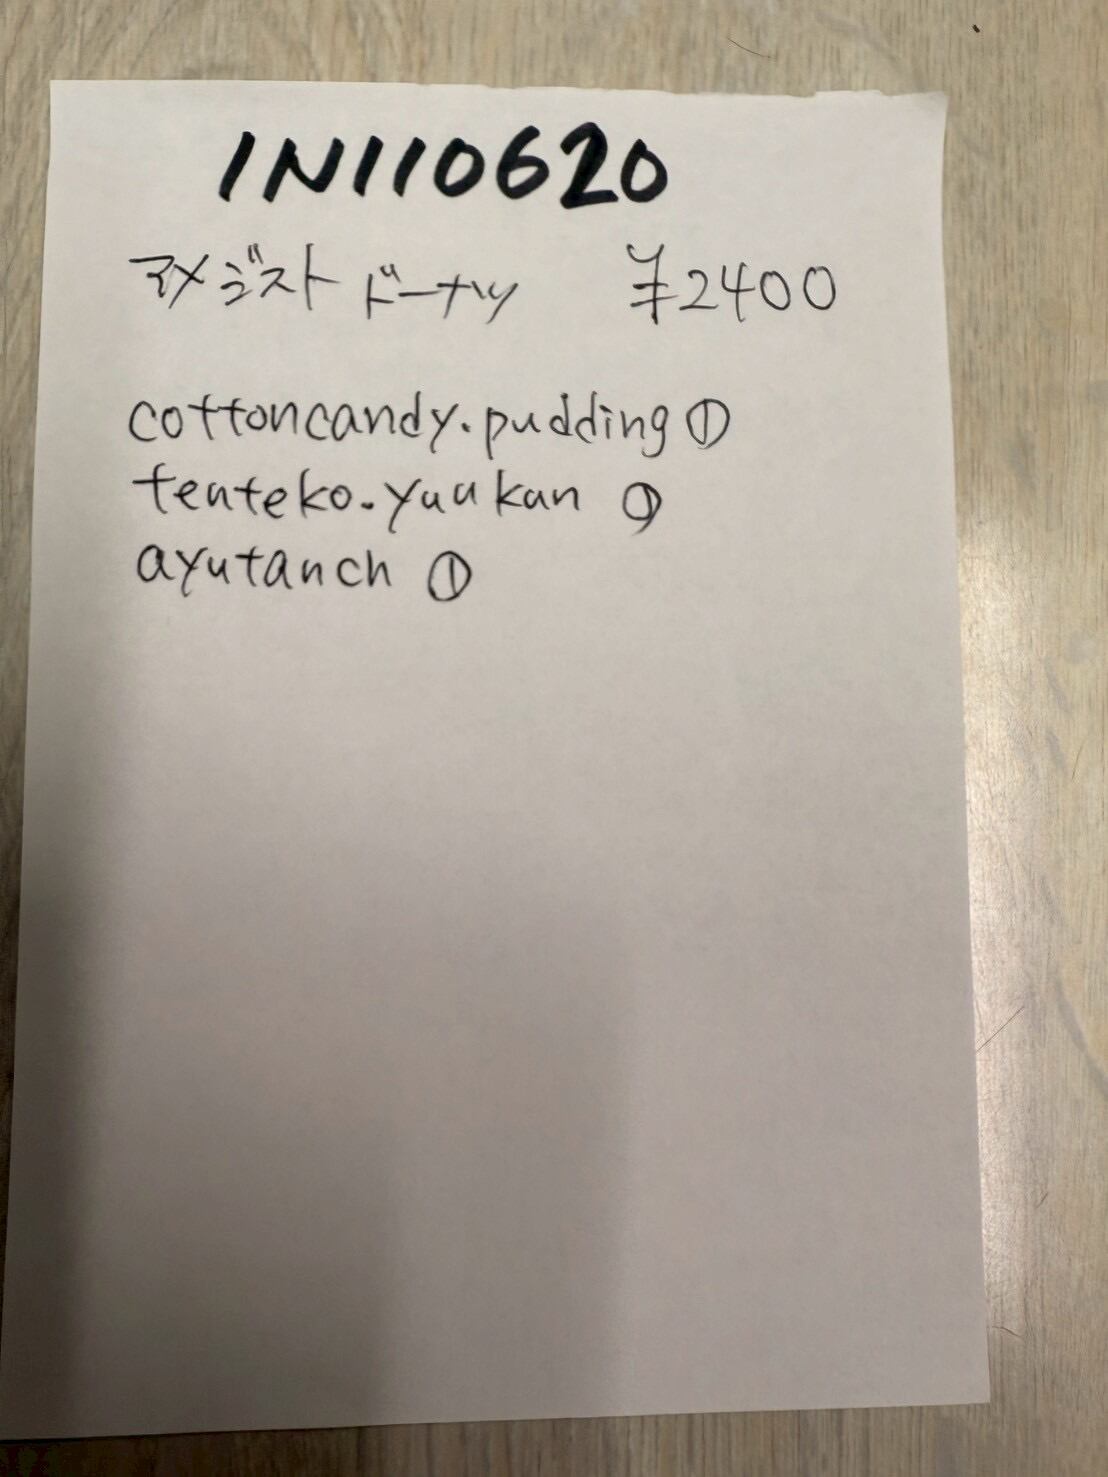 IN110620
アメジスト ドーナツ ¥2400
cottoncandy.pudding ①
tenteko.yuukan ①
ayutanch ①